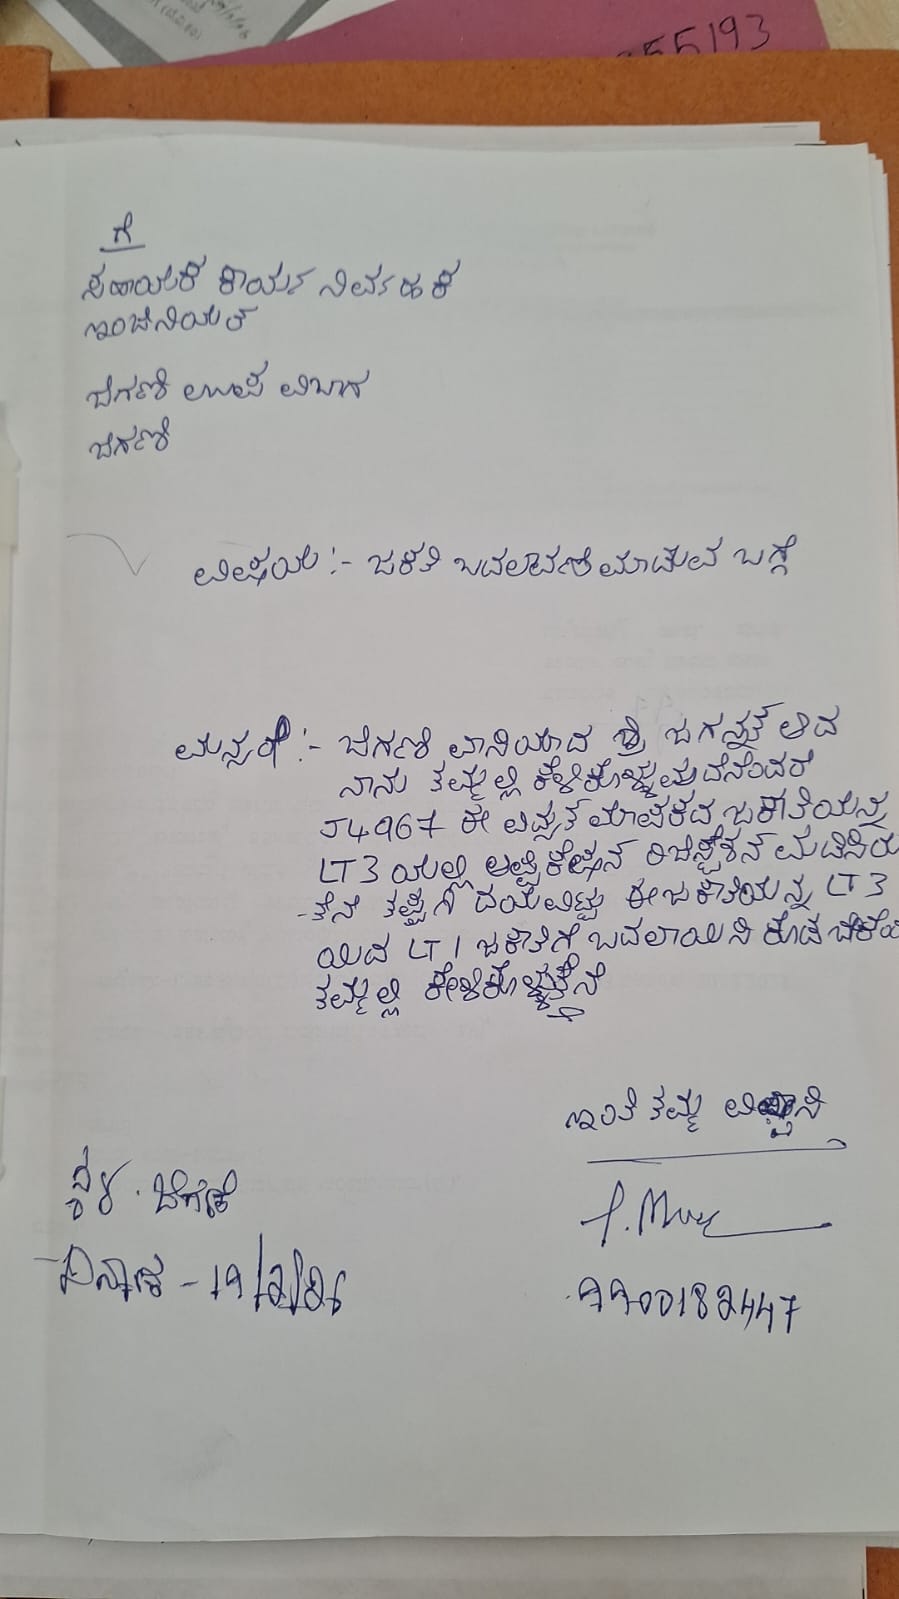 355193
ಗೆ
ಸಹಾಯಕ ಕಾರ್ಯ ನಿರ್ವಾಹಕ
ಇಂಜಿನಿಯರ
ಜಿಗಣಿ ಉಪ ವಿಬಾಗ
ಜಿಗಣಿ
ವಿಷಯ :- ಜಕತಿ ಬದಲಾವಣೆ ಮಾಡುವ ಬಗ್ಗೆ
ಮಾನ್ಯರೇ :- ಜಿಗಣಿ ವಾಸಿಯಾದ ಶ್ರಿ ಜಗನ್ನತ ಆದ
ನಾನು ತಮ್ಮಲ್ಲಿ ಕೇಳಿಕೊಳ್ಳುವುದೆನೆಂದರೆ
J4967 ಈ ವಿದ್ಯುತ ಮಾಪಕದ ಜಕಾತಿಯನ್ನು
LT3 ಯಲ್ಲಿ ಅಪ್ಲಿಕೇಷನ ರಿಜಿಸ್ಟ್ರೆಶನ ಮಾಡಿಸಿರು
-ತೆನೆ ತಪ್ಪಗಿ ದಯವಿಟ್ಟು ಈ ಜಕಾತಿಯನ್ನು LT3
ಯಿದ LT1 ಜಕಾತಿಗೆ ಬದಲಾಯಿಸಿ ಕೊಡ ಬೇಕೆಂದು
ತಮ್ಮಲ್ಲಿ ಕೇಳಿಕೊಳ್ಳುತ್ತೆನೆ
ಇಂತಿ ತಮ್ಮ ವಿಶ್ವಾಸಿ
ಸ್ಥಳ . ಜಿಗಣಿ
ದಿನ್ನಾಂಕ - 19/2/26
9900182447